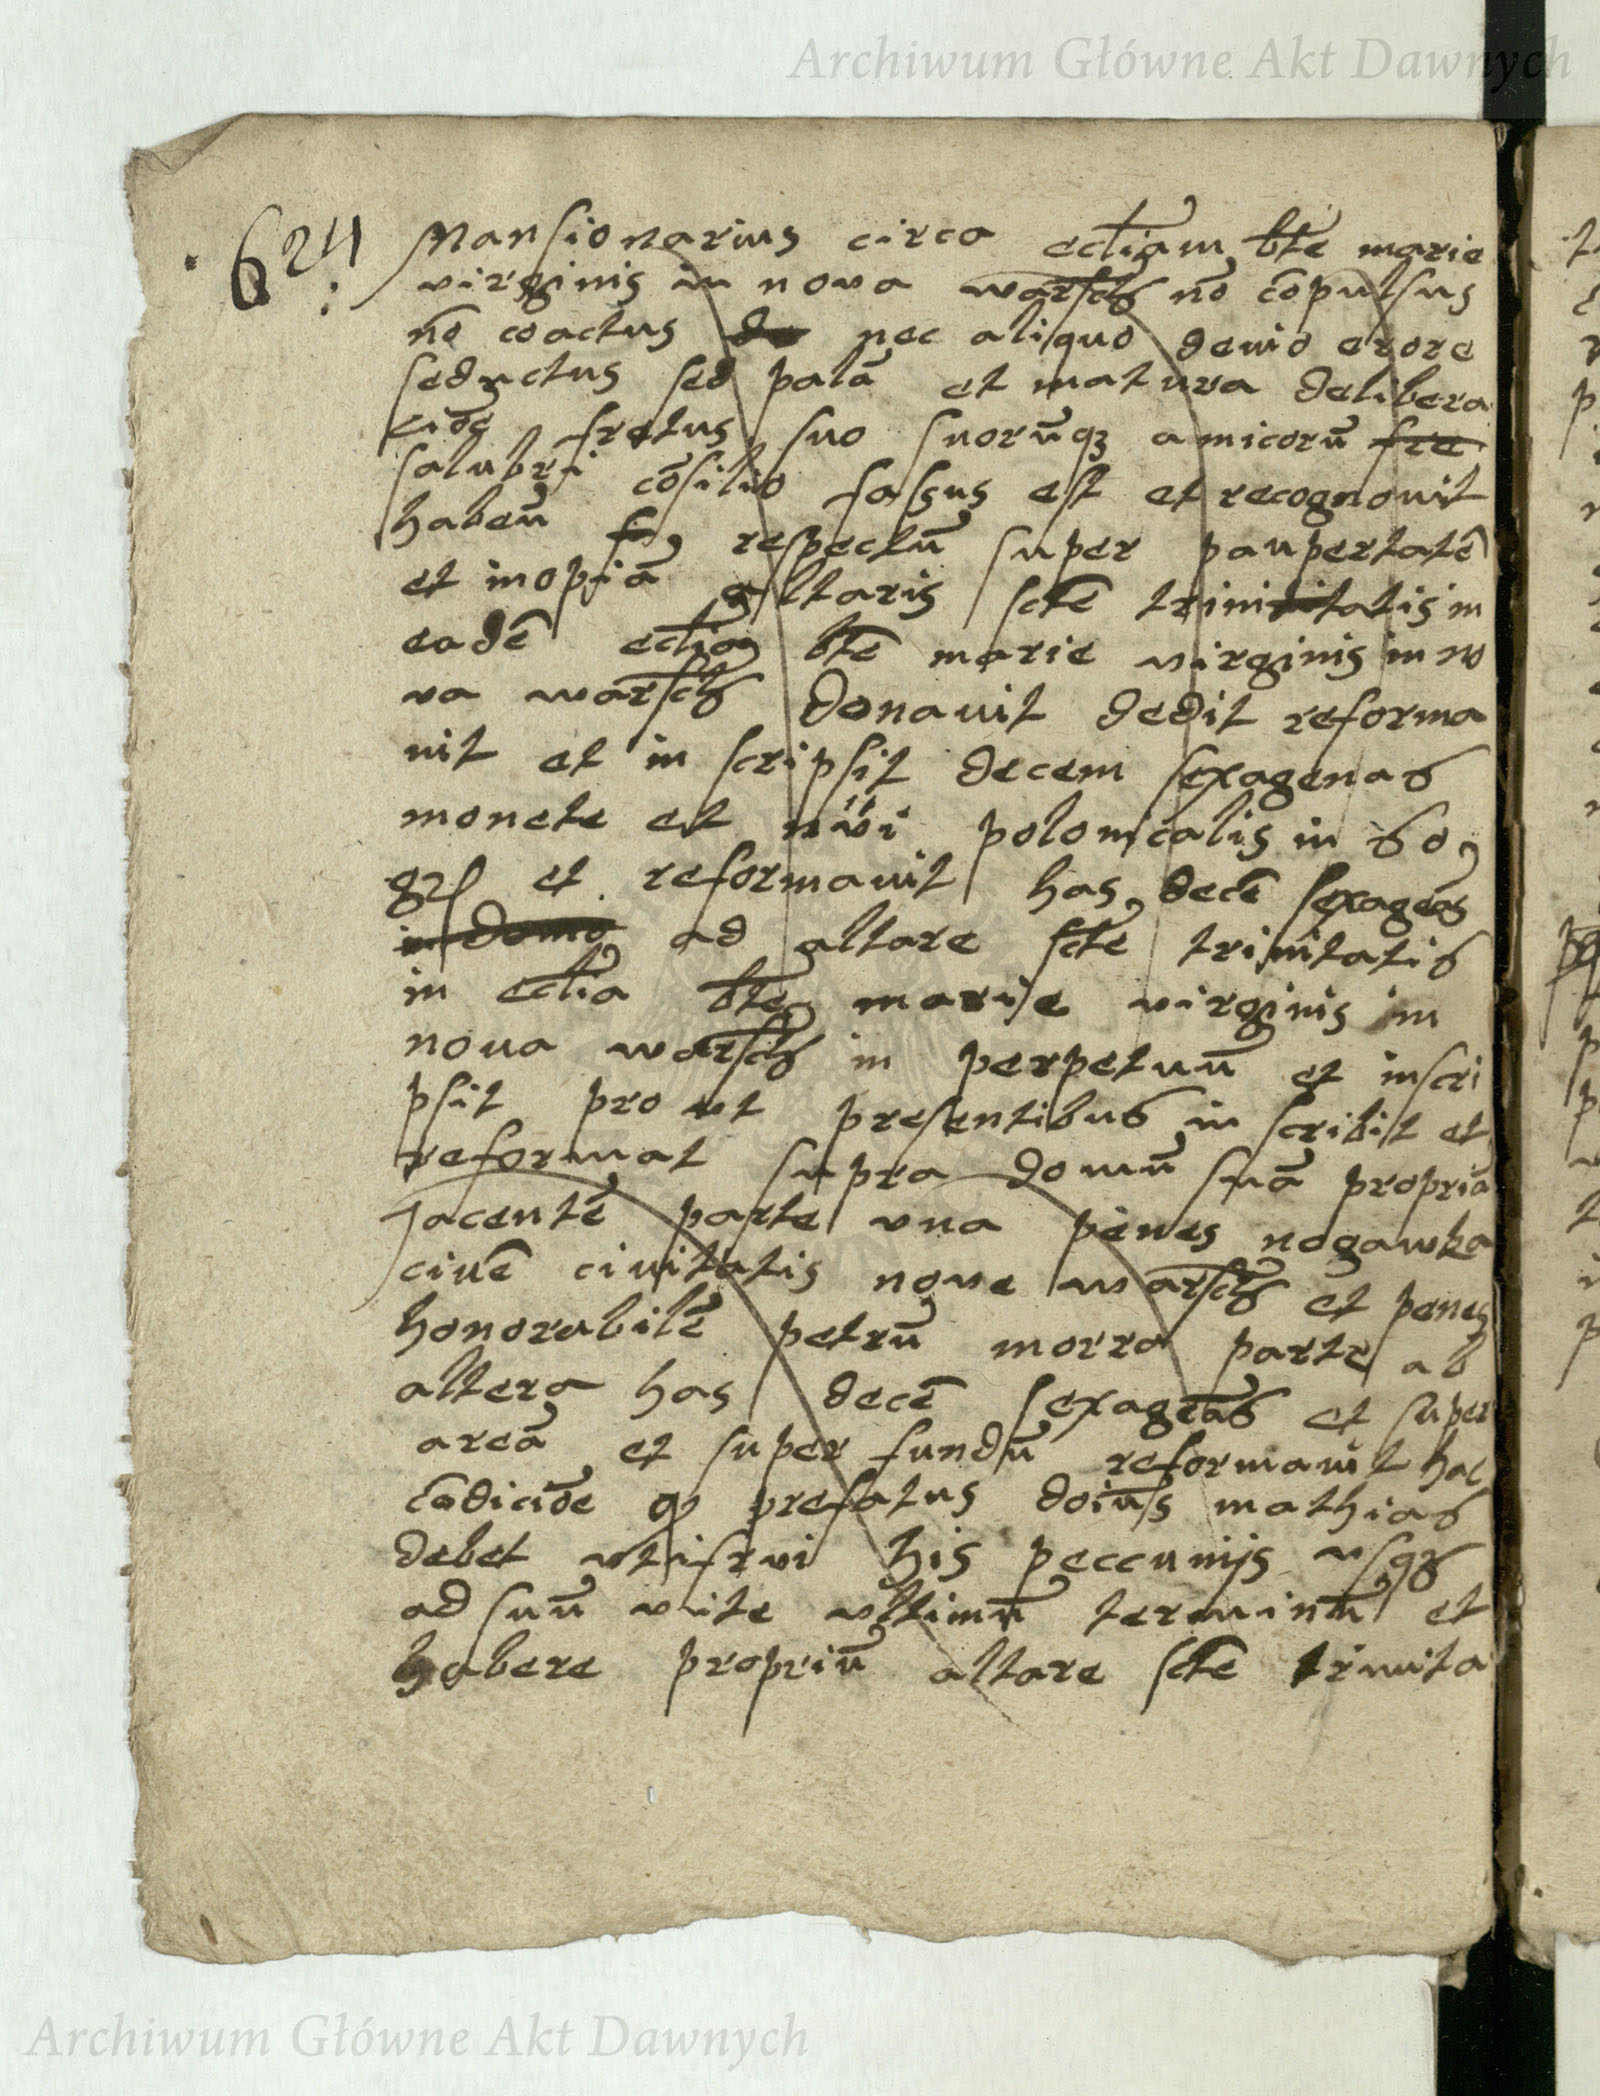 Archiwum Główne Akt Dawnych
624
Mansionarius circa ecctiam bte marie
virginis in nova warsch no copulsus
no coactus de nec aliquo devio erore
seductus sed pala et matura delibera
cioe fretus suo suorūqz amicorū fre
salubri cōsilio fassus est et recognovit
habeū respectū super paupertatē
et inopiā altaris sctē trinitatis in
eadē ecctia btē marie virginis in no
va warsch donavit dedit reforma
vit et in scripsit decem sexagenas
monete et nūi polonicalis in 60
grs et reformavit has decē sexageās
in domo ad altare sctē trinitatis
in ecctia btē marie virginis in
nova warsch in perpetuū et inscri
psit pro ut presentibus in scribit et
reformat supra domū suā propriā
Jacentē parte una penes nogawka
civē civitatis nove warsch et penes
honorabilē petrū morra parte ab
altera has decē sexageās et super
areā et super fundū reformavit hac
cōdicioe qz prefatus doiūs mathias
debet utifrui his peccunijs usqz
ad suū vite ultimū terminū et
habere propriū altare sctē trinita
Archiwum Główne Akt Dawnych